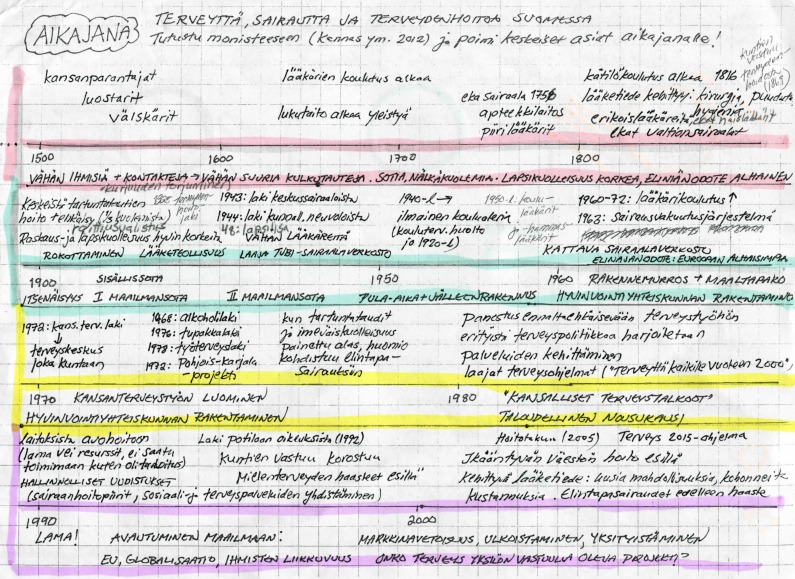 AIKAJANA
TERVEYTTÄ, SAIRAUTTA JA TERVEYDENHOITOA SUOMESSA
Tutustu monisteeseen (Kennas ym. 2012) ja poimi keskeiset asiat aikajanalle!
kuntien
(1869)
kansanparantajat
lääkärien koulutus alkaa
kätilökoulutus alkaa 1816
luostarit
eka sairaala 1756
lääketiede kehittyy: kirurgia, puudutus
hygienia
välskärit
lukutaito alkaa yleistyä
apteekkilaitos
erikoislääkäreitä
piirilääkärit
ekat valtionsairaalat
1500 1600 1700 1800
VÄHÄN IHMISIÄ + KONTAKTEJA → VÄHÄN SUURIA KULKUTAUTEJA. SOTIA, NÄLKÄKUOLEMIA. LAPSIKUOLLEISUUS KORKEA, ELINIÄNODOTE ALHAINEN
Keskeistä tartuntatautien
1943: laki keskussairaaloista
1940-l →
1950-l. koulu-
lääkärit
1960-72: lääkärikoulutus ↑
1944: laki kunnall. neuvoloista
ilmainen kouluruoka
1963: Sairausvakuutusjärjestelmä
raittiusvalistus
48: lapsilisä
VÄHÄN LÄÄKÄREITÄ
(kouluterv.huolto
jo 1920-l)
ja hammas-
lääkärit
KATTAVA SAIRAALAVERKOSTO
ROKOTTAMINEN LÄÄKETEOLLISUUS LAAJA TUBI-SAIRAALAVERKOSTO
ELINIÄNODOTE: EUROOPAN ALHAISIMPIA
1900 SISÄLLISSOTA 1950 1960 RAKENNEMURROS + MAALTAPAKO
ITSENÄISYYS I MAAILMANSOTA II MAAILMANSOTA PULA-AIKA + JÄLLEENRAKENNUS HYVINVOINTIYHTEISKUNNAN RAKENTAMINEN
1972: kans.terv.laki
↓
terveyskeskus
joka kuntaan
1968: alkoholilaki
1976: tupakkalaki
1978: työterveyslaki
1972: Pohjois-Karjala
-projekti
kun tartuntataudit
ja imeväiskuolleisuus
painettu alas, huomio
kohdistuu elintapa-
sairauksiin
Panostus ennaltaehkäisevään terveystyöhön
erityistä terveyspolitiikkaa harjoitetaan
palveluiden kehittäminen
laajat terveysohjelmat ("Terveyttä kaikille vuoteen 2000")
1970 KANSANTERVEYSTYÖN LUOMINEN 1980 "KANSALLISET TERVEYSTALKOOT"
HYVINVOINTIYHTEISKUNNAN RAKENTAMINEN TALOUDELLINEN NOUSUKAUSI
laitoksista avohoitoon
(lama vei resurssit, ei saatu
toimimaan kuten oli tarkoitus)
HALLINNOLLISET UUDISTUKSET
(sairaanhoitopiirit, sosiaali- ja terveyspalveluiden yhdistäminen)
Laki potilaan oikeuksista (1992)
Kuntien vastuu korostuu
Mielenterveyden haasteet esillä
Hoitotakuu (2005) Terveys 2015-ohjelma
Ikääntyvän väestön hoito esillä
Kehittyvä lääketiede: uusia mahdollisuuksia, kohonneita
kustannuksia. Elintapasairaudet edelleen haaste
1990 2000
LAMA! AVAUTUMINEN MAAILMAAN: MARKKINAVETOISUUS, ULKOISTAMINEN, YKSITYISTÄMINEN
EU, GLOBALISAATIO, IHMISTEN LIIKKUVUUS ONKO TERVEYS YKSILÖN VASTUULLA OLEVA PROJEKTI?